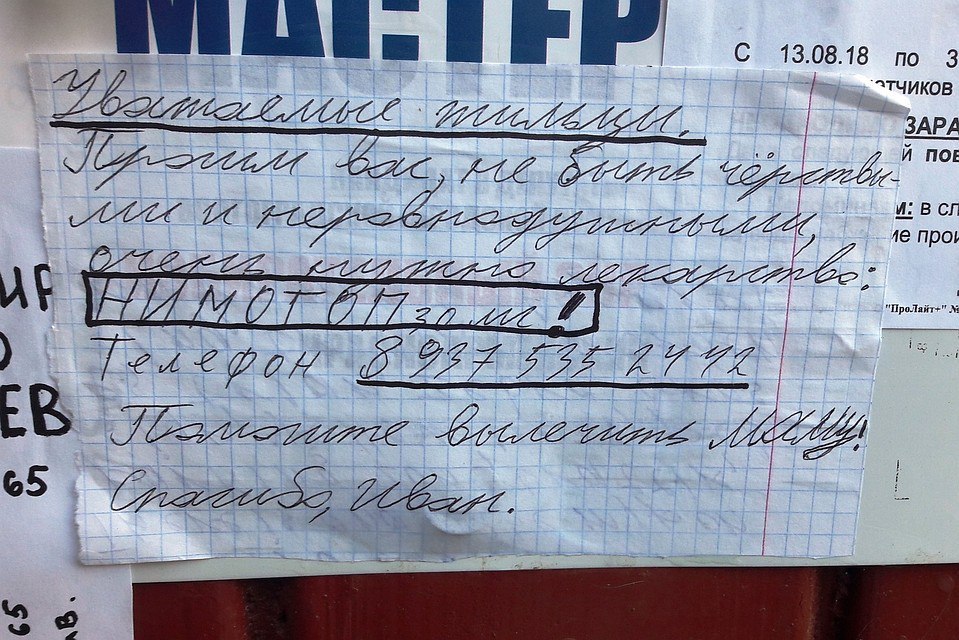 МАСТЕР
С 13.08.18 по 3
отчиков
ЗАРА
й пов
м: в сл
ие прои
"ПроЛайт+" №
Уважаемые жильцы.
Просим вас, не быть чёрствы-
ми и неравнодушными,
очень нужно лекарство:
НИМОТОП 30 мг!
Телефон 8 937 535 2442
Помогите вылечить Маму!
Спасибо, Иван.
ЕВ
65
65